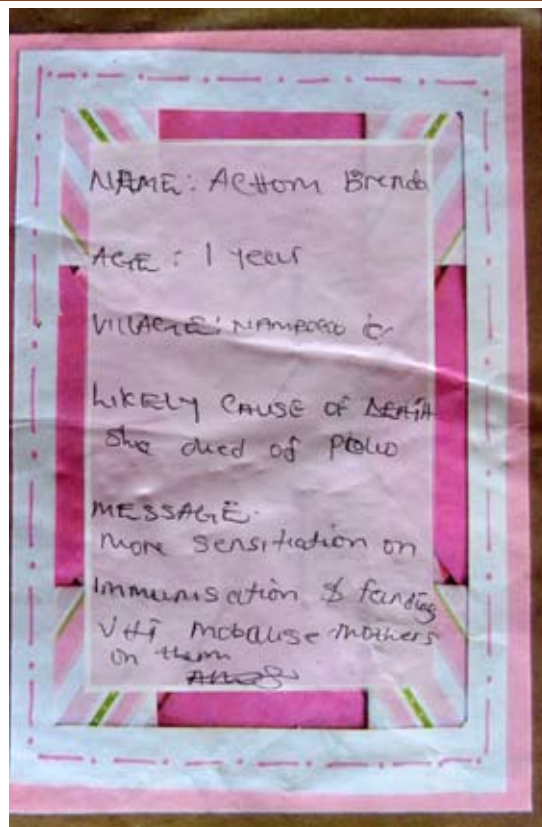 NAME: ACHOM Brenda
AGE : 1 year
VILLAGE: NAMPOGO
LIKELY CAUSE OF DEATH
She died of Polio
MESSAGE.
More sensitiation on
Immunisation & funding
VHT mobalise mothers
on them